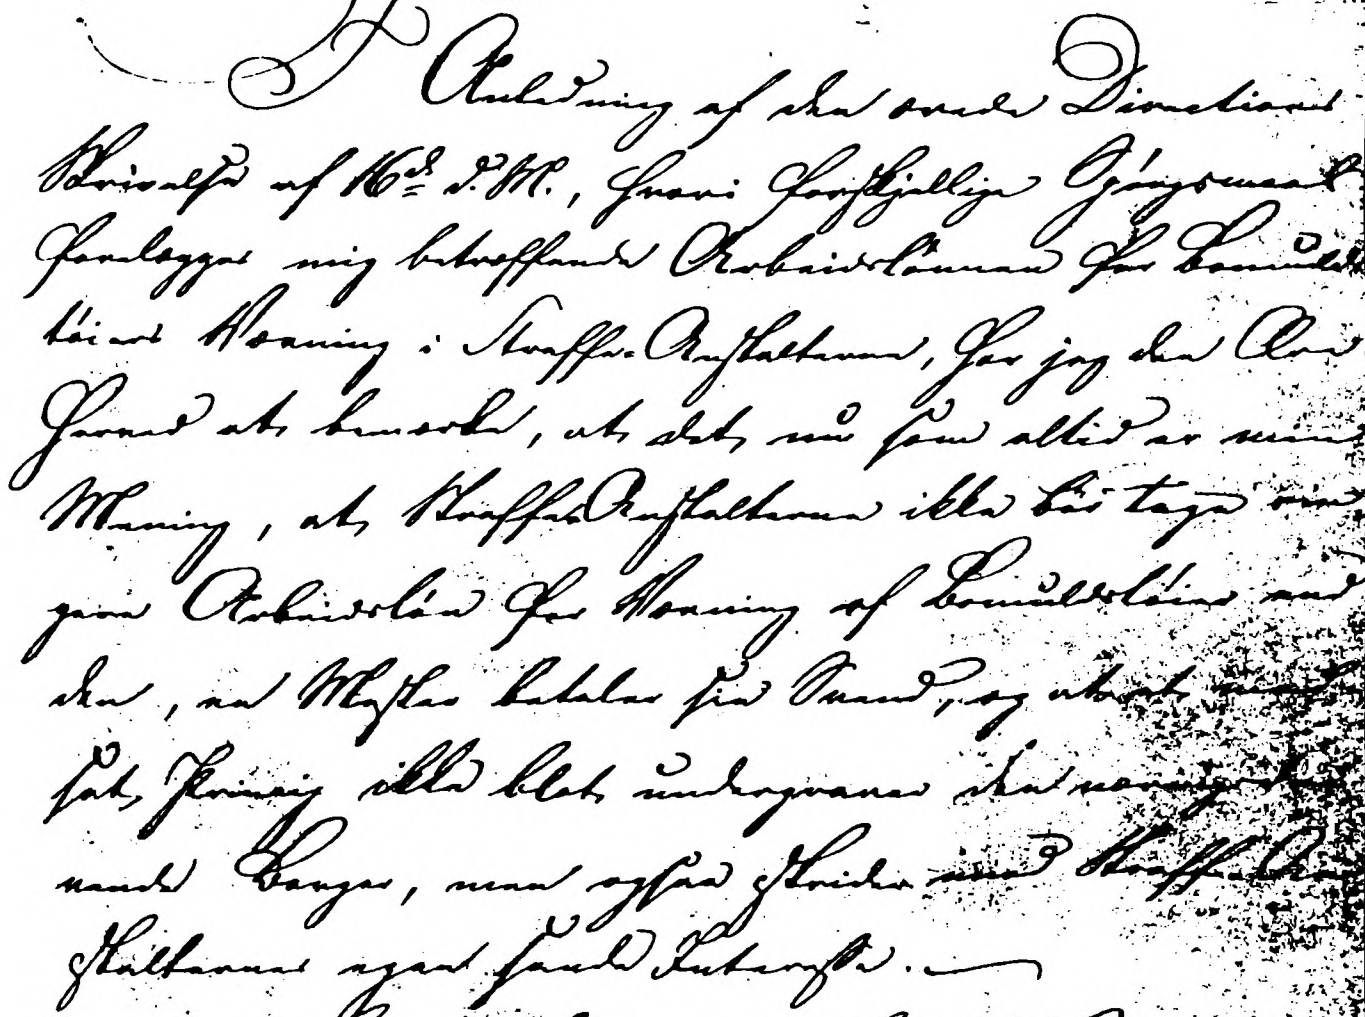 I Anledning af den ærede Directions
Skrivelse af 16de d. M., hvori forskjellige Spörgsmaal
forelægges mig betræffende Arbeidslönnen for Bomulds
töiers Vævning i Straffe-Anstalterne, har jeg den Ære
herved at bemærke, at det nu som altid er min
Mening, at Straffe-Anstalterne ikke bör tage rin
gere Arbeidslön for Vævning af Bomuldstöier end
den, en Mester betaler sin Svend, og at et mod
sat Princip ikke blot undergraver den
vende Borger, men ogsaa strider mod Straffe-An
stalternes egen sande Interesse.